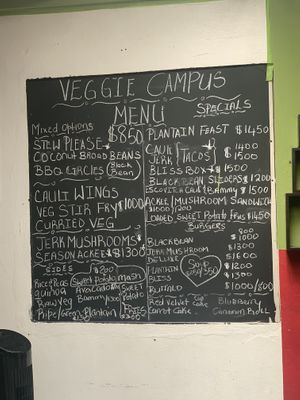 VEGGIE CAMPUS
MENU
SPECIALS
Mixed Options
STEW PLEASE $850
COCONUT BROAD BEANS
BBQ CIRCLES Black Bean
CAULI WINGS
VEG STIR FRY $1000
CURRIED VEG
JERK MUSHROOMS
SEASON ACKEE $1300
SIDES $200
Rice & Peas Sweet Potato mash
Quinoa Avacado
Raw Veg Bammy
Ripe/Green Plantain
SWEET POTATO FRIES
PLANTAIN FEAST $1450
CAULI TACOS $1400
JERK $1500
BLISS BOX $1500
BLACK BEAN SLIDERS $1200
ESCOVITCH BAMMY $1500
ACKEE/MUSHROOM SANDWICH
LOADED SWEET POTATO FRIES $1450
BURGERS
BLACK BEAN
JERK MUSHROOM $1300
DELUXE $1600
PLANTAIN $1200
BLISS $1300
BUFFALO
Soup
Red Velvet Cup Cake
Carrot Cake
Blueberry
Cinnamon Roll